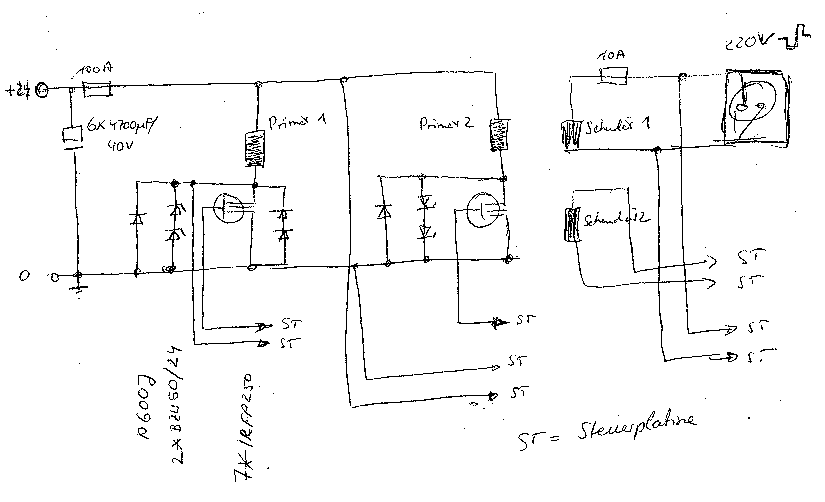 100A
10A
220V
+24
6x4700µF/
40V
Primär 1
Primär 2
Sekundär 1
Sekundär 2
0
ST
ST
ST
ST
ST
ST
ST
ST
ST
P600J
2xBZW50/24
7xIRFP250
ST = Steuerplatine